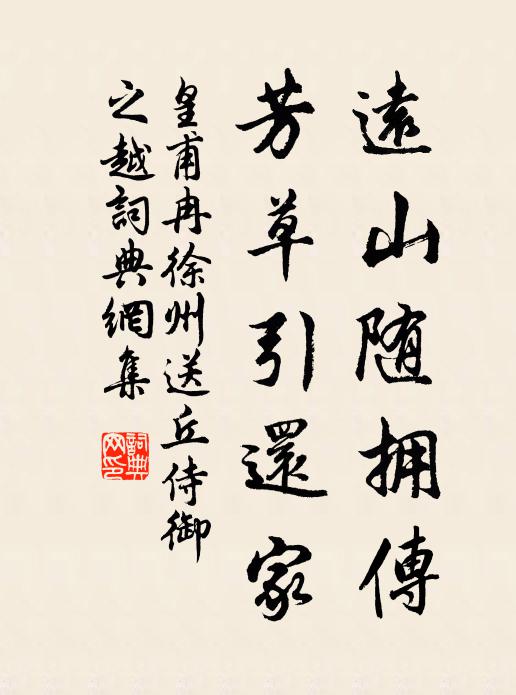 遠山随拥傳
芳草引還家
皇甫冉徐州送丘侍御
之越詞典網集
詞典網印